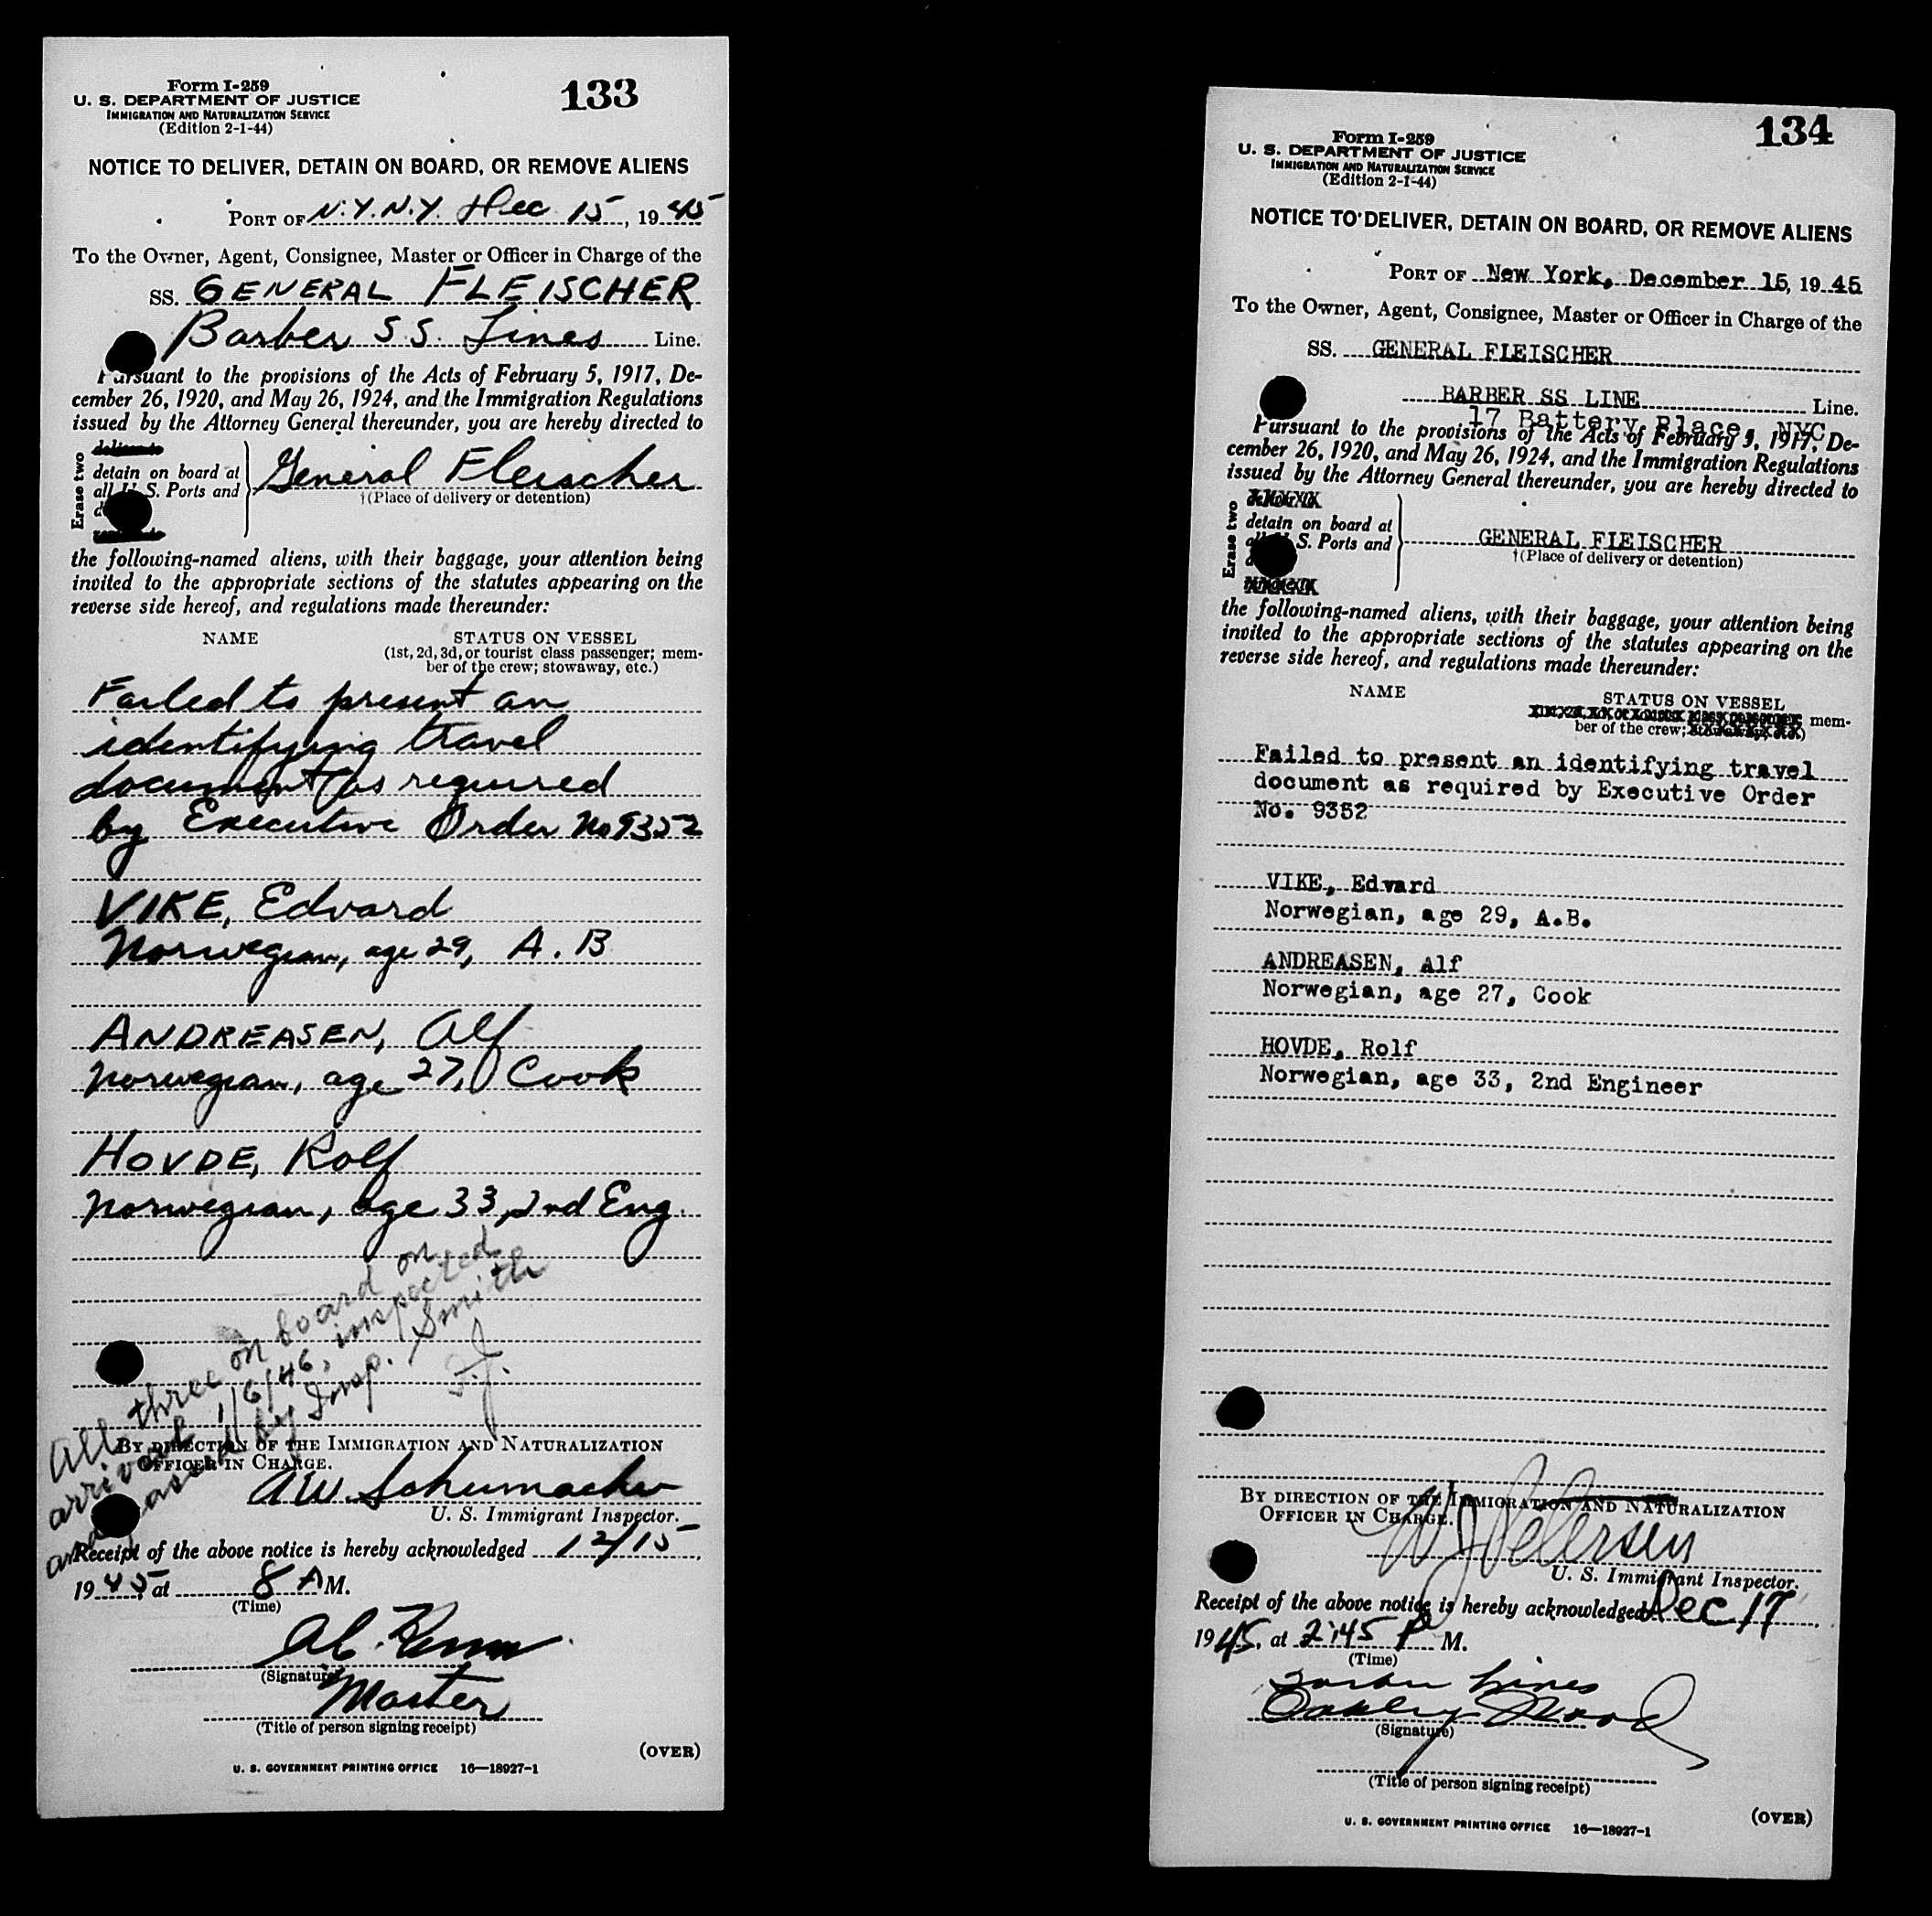 Form I-259
U. S. DEPARTMENT OF JUSTICE
IMMIGRATION AND NATURALIZATION SERVICE
(Edition 2-1-44)
133
NOTICE TO DELIVER, DETAIN ON BOARD, OR REMOVE ALIENS
PORT OF N.Y.N.Y. Dec 15, 1945
To the Owner, Agent, Consignee, Master or Officer in Charge of the
SS. GENERAL FLEISCHER
Barber S S. Lines Line.
Pursuant to the provisions of the Acts of February 5, 1917, De-
cember 26, 1920, and May 26, 1924, and the Immigration Regulations
issued by the Attorney General thereunder, you are hereby directed to
Erase two
detain on board at
all U. S. Ports and
General Fleischer
†(Place of delivery or detention)
the following-named aliens, with their baggage, your attention being
invited to the appropriate sections of the statutes appearing on the
reverse side hereof, and regulations made thereunder:
NAME STATUS ON VESSEL
(1st, 2d, 3d, or tourist class passenger; mem-
ber of the crew; stowaway, etc.)
Failed to present an
identifying travel
document as required
by Executive Order No 9352
VIKE, Edvard
Norwegian, age 29, A.B
ANDREASEN, Alf
Norwegian, age 27, Cook
HOVDE, Rolf
Norwegian, age 33, 2nd Eng.
All three on board on
arrival 1/6/46, inspected
and passed by Insp. Smith
BY DIRECTION OF THE IMMIGRATION AND NATURALIZATION
OFFICER IN CHARGE.
A W. Schumacher
U. S. Immigrant Inspector.
Receipt of the above notice is hereby acknowledged 12/15,
1945, at 8 A M.
(Time)
(Signature)
Master
(Title of person signing receipt)
(OVER)
U. S. GOVERNMENT PRINTING OFFICE 16—18927-1
Form I-259
U. S. DEPARTMENT OF JUSTICE
IMMIGRATION AND NATURALIZATION SERVICE
(Edition 2-1-44)
134
NOTICE TO DELIVER, DETAIN ON BOARD, OR REMOVE ALIENS
PORT OF New York, December 15, 1945
To the Owner, Agent, Consignee, Master or Officer in Charge of the
SS. GENERAL FLEISCHER
BARBER SS LINE Line.
17 Battery Place, NYC
Pursuant to the provisions of the Acts of February 5, 1917, De-
cember 26, 1920, and May 26, 1924, and the Immigration Regulations
issued by the Attorney General thereunder, you are hereby directed to
Erase two
detain on board at
all U. S. Ports and
GENERAL FLEISCHER
†(Place of delivery or detention)
the following-named aliens, with their baggage, your attention being
invited to the appropriate sections of the statutes appearing on the
reverse side hereof, and regulations made thereunder:
NAME STATUS ON VESSEL
mem-
ber of the crew;
Failed to present an identifying travel
document as required by Executive Order
No. 9352
VIKE, Edvard
Norwegian, age 29, A.B.
ANDREASEN, Alf
Norwegian, age 27, Cook
HOVDE, Rolf
Norwegian, age 33, 2nd Engineer
BY DIRECTION OF THE IMMIGRATION AND NATURALIZATION
OFFICER IN CHARGE.
Petersen
U. S. Immigrant Inspector.
Receipt of the above notice is hereby acknowledged Dec 17,
1945, at 2:45 P M.
(Time)
Lines
Oakley Wood
(Signature)
(Title of person signing receipt)
(OVER)
U. S. GOVERNMENT PRINTING OFFICE 16—18927-1